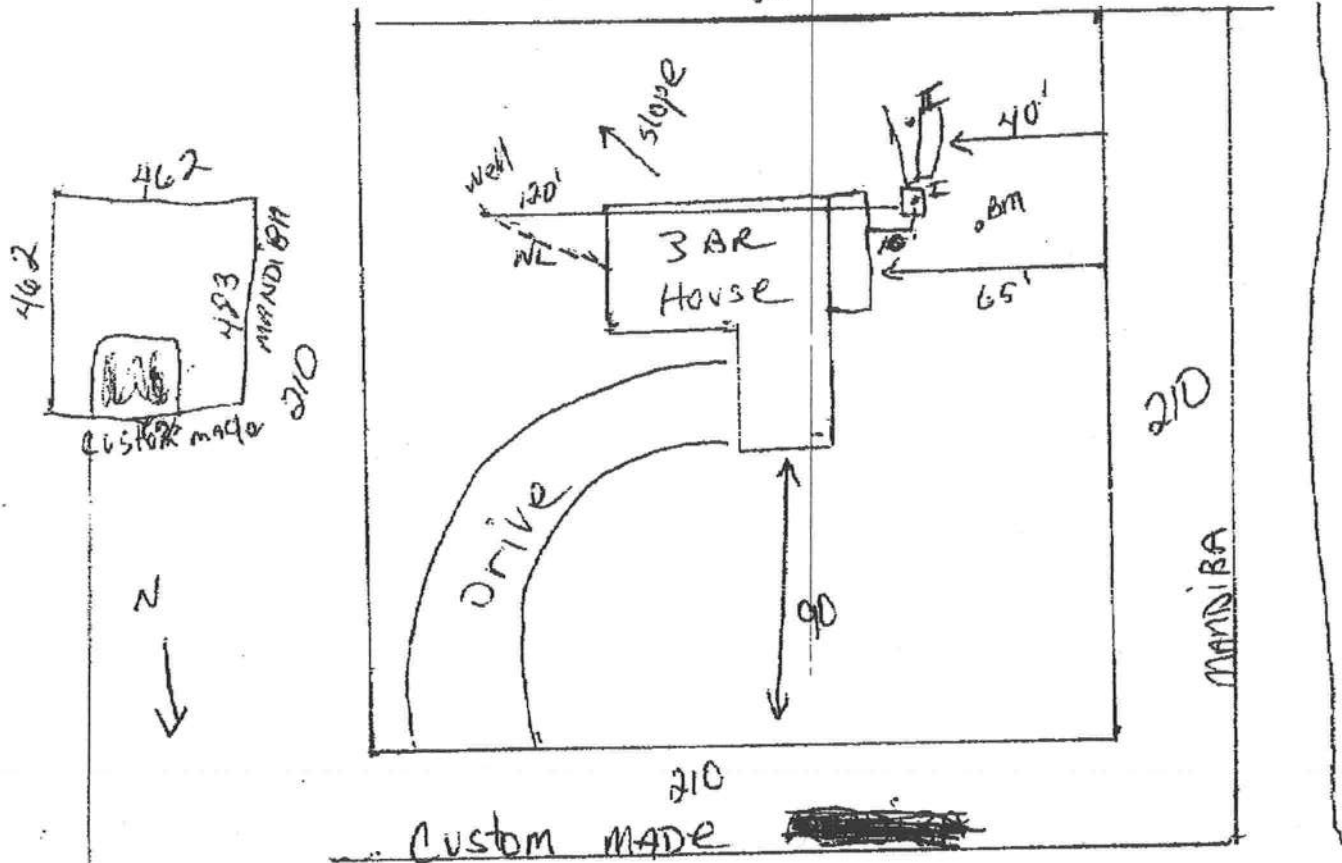 462
462
493
MANDIBA
210
Custom made
N
slope
well
120'
WL
3 BR
House
Drive
90
II
I
40'
.BM
10'
65'
210
MANDIBA
210
Custom MADE